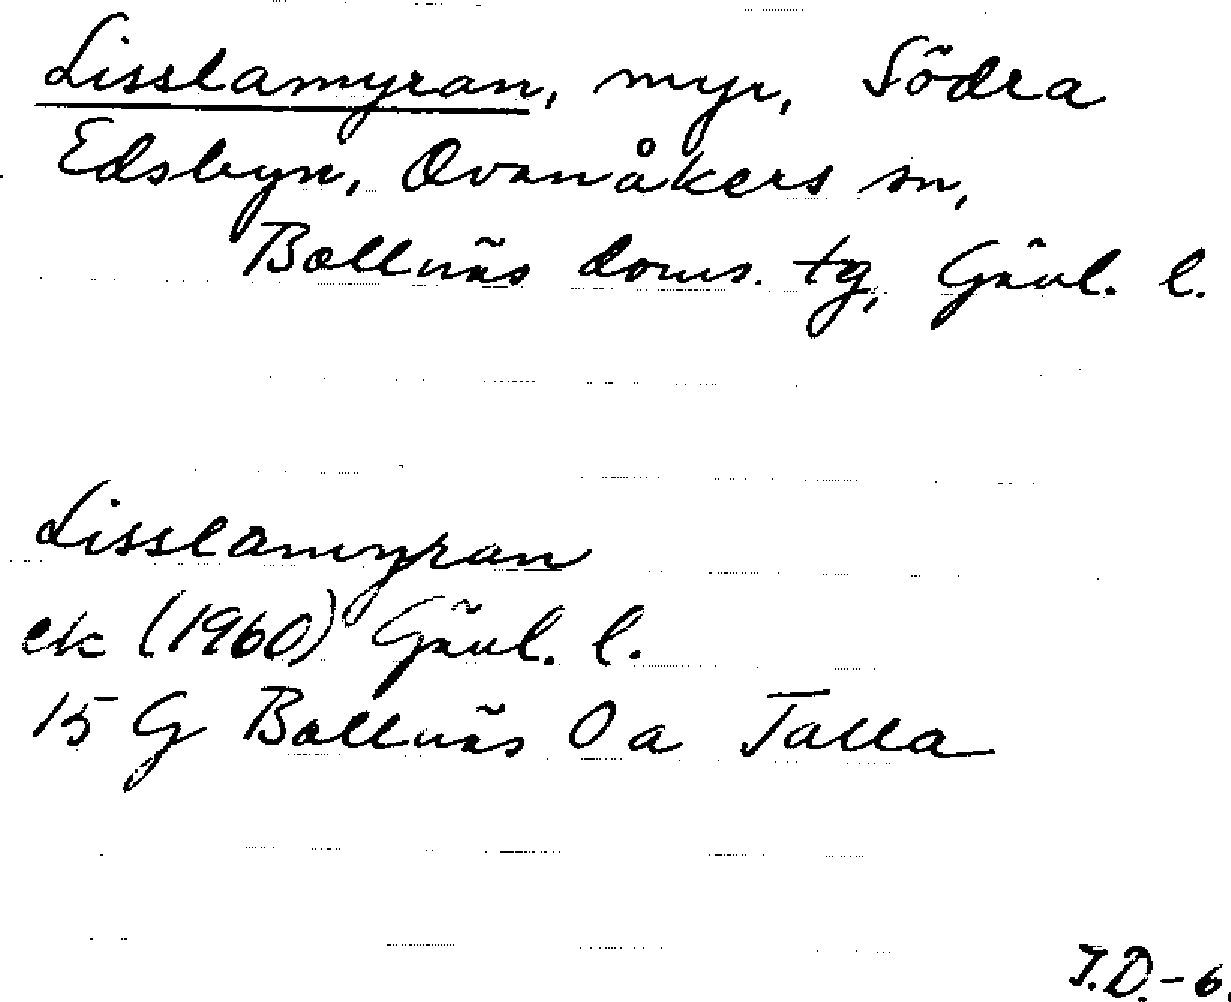 Lisslamyran, myr, Södra
Edsbyn, Ovanåkers sn,
Bollnäs doms. tg, Gävl. l.
Lisslamyran
ek (1960) Gävl. l.
15 G Bollnäs 0 a Talla
I.D.-6